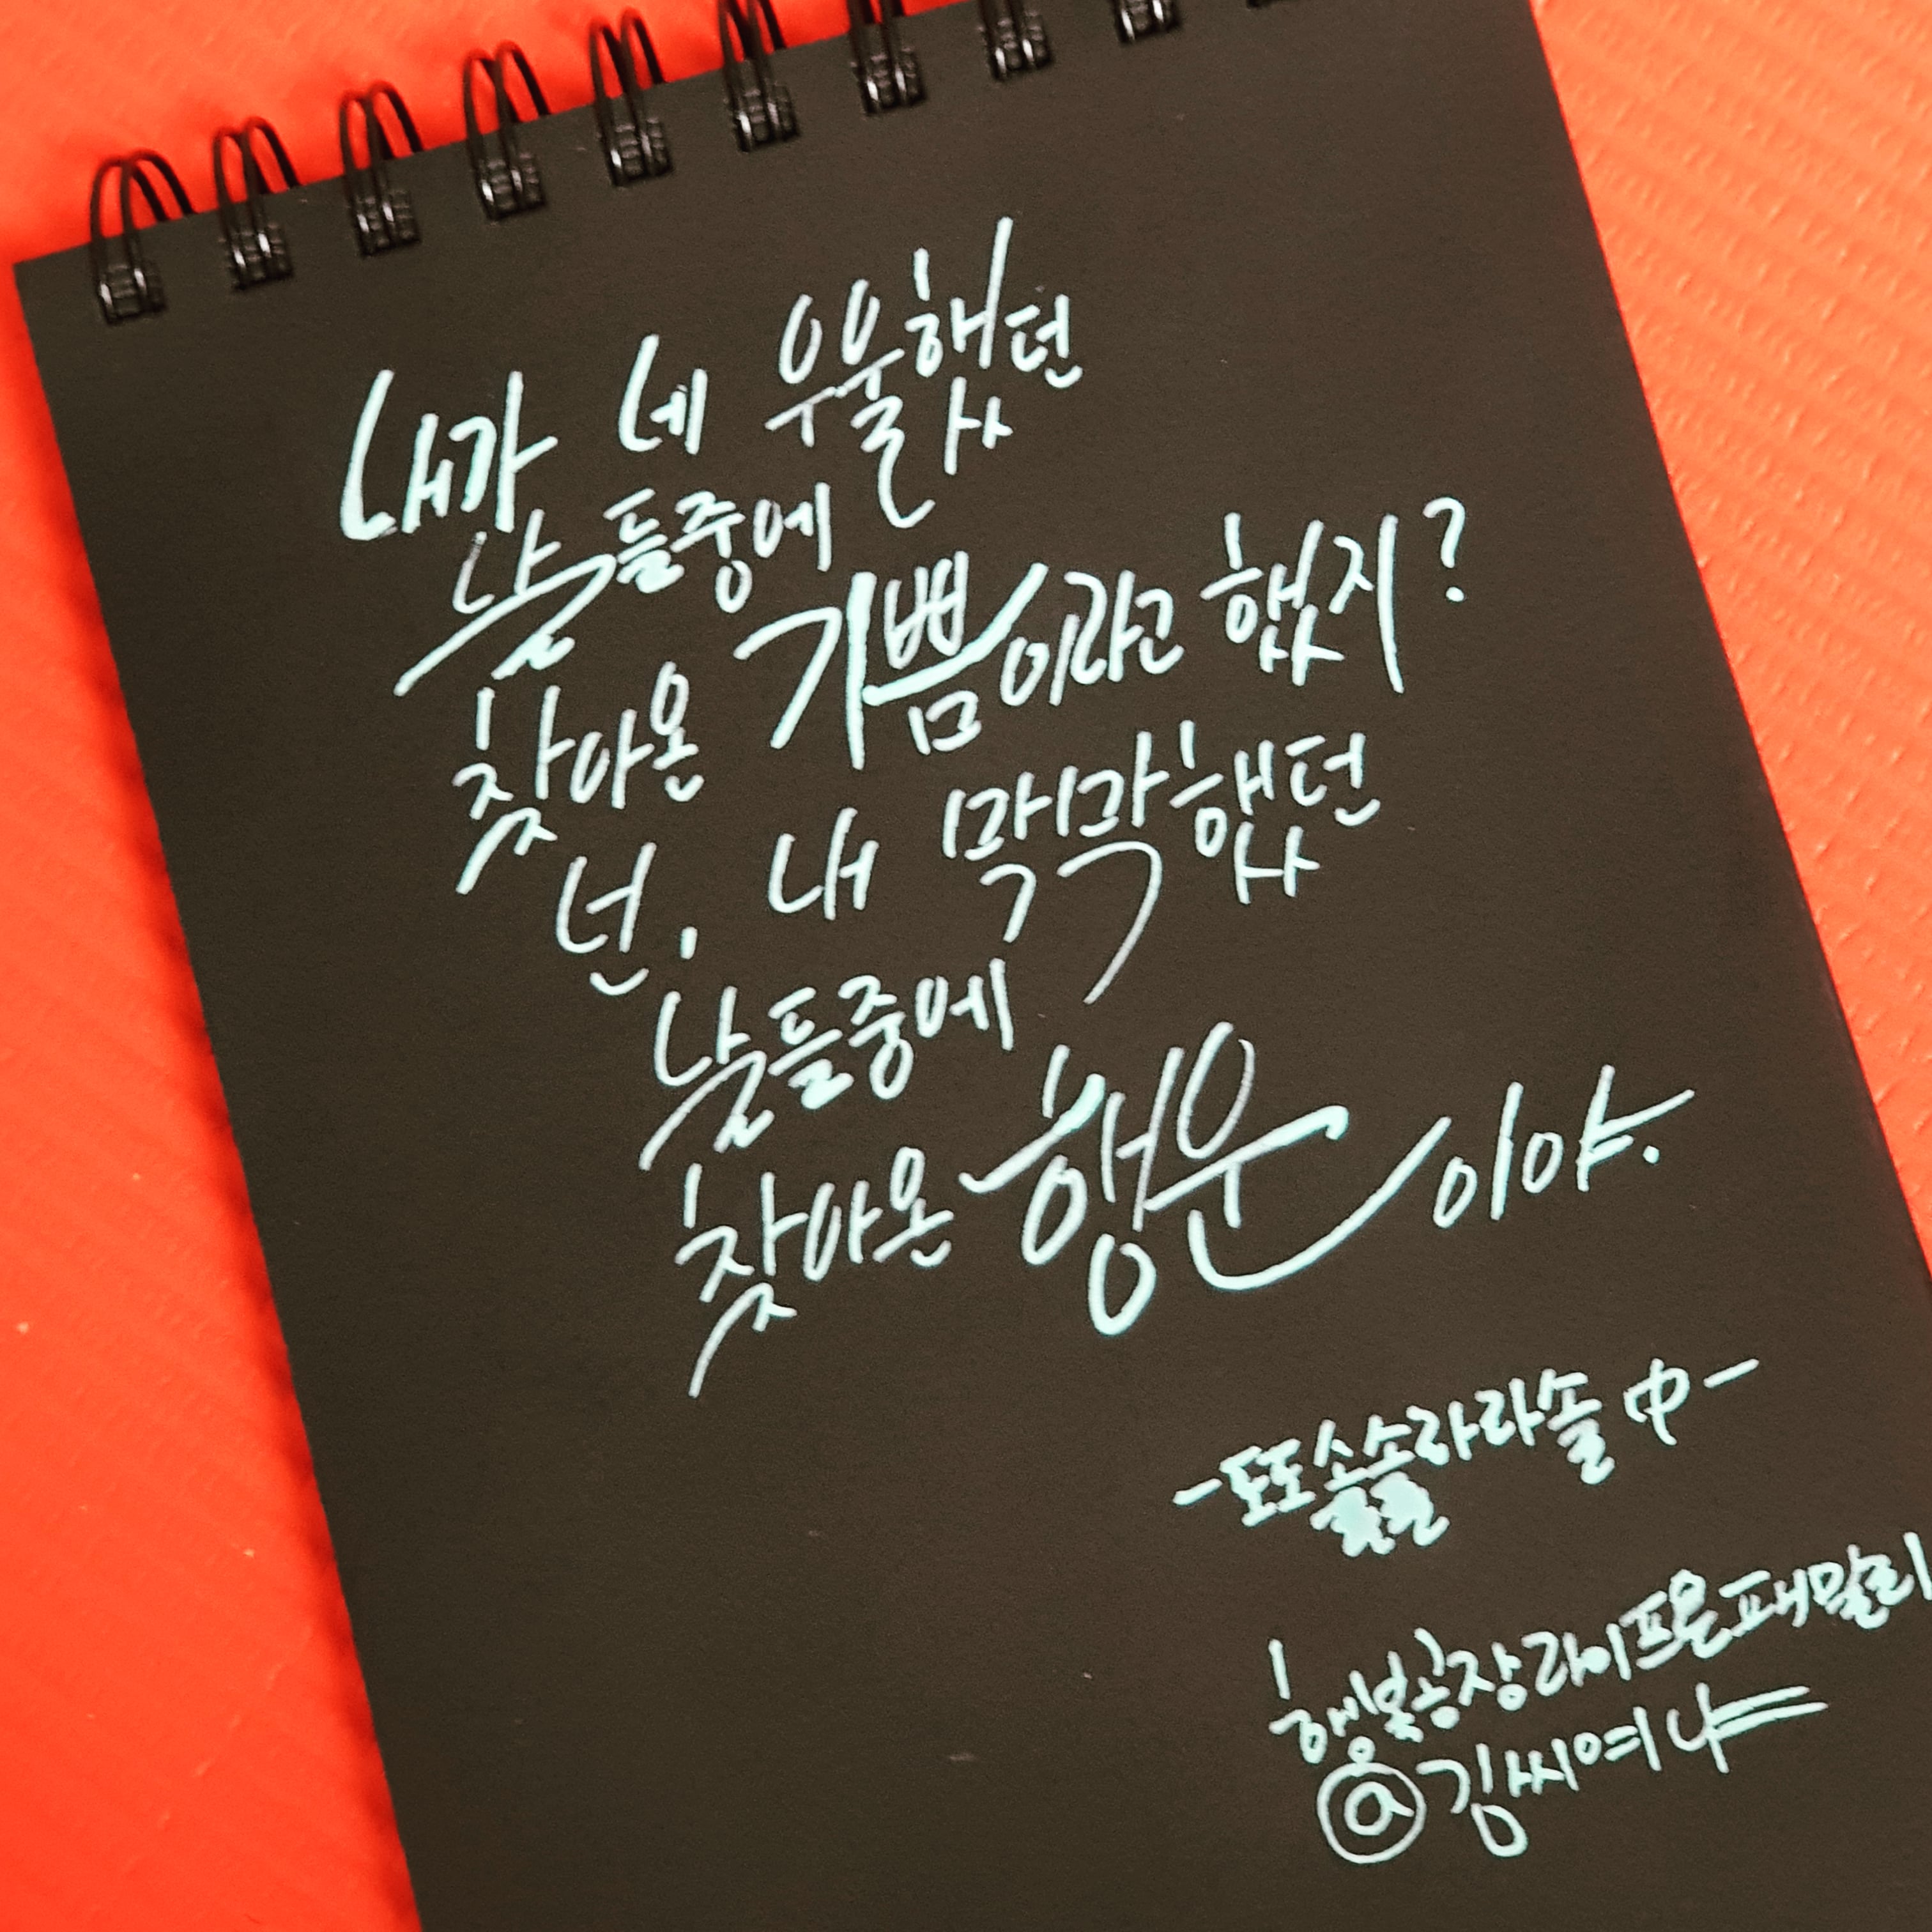 내가 네 우울했던
날들중에
찾아온 기쁨이라고 했지?
넌, 내 막막했던
날들중에
찾아온 행운이야.
-도도솔솔라라솔 中-
행복공장라이프온패밀리
@김씨여나